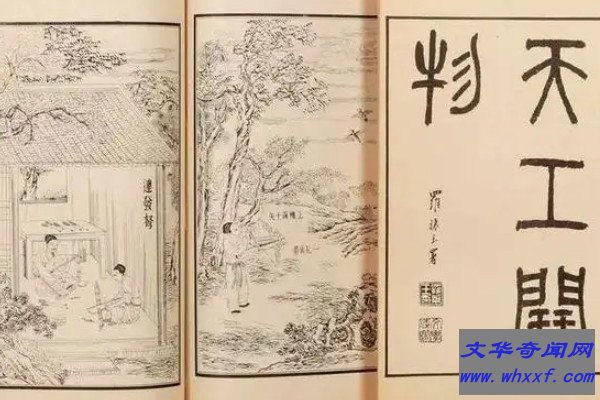 天工開
物
羅振玉署
連發弩
文华奇闻网
www.whxxf.com